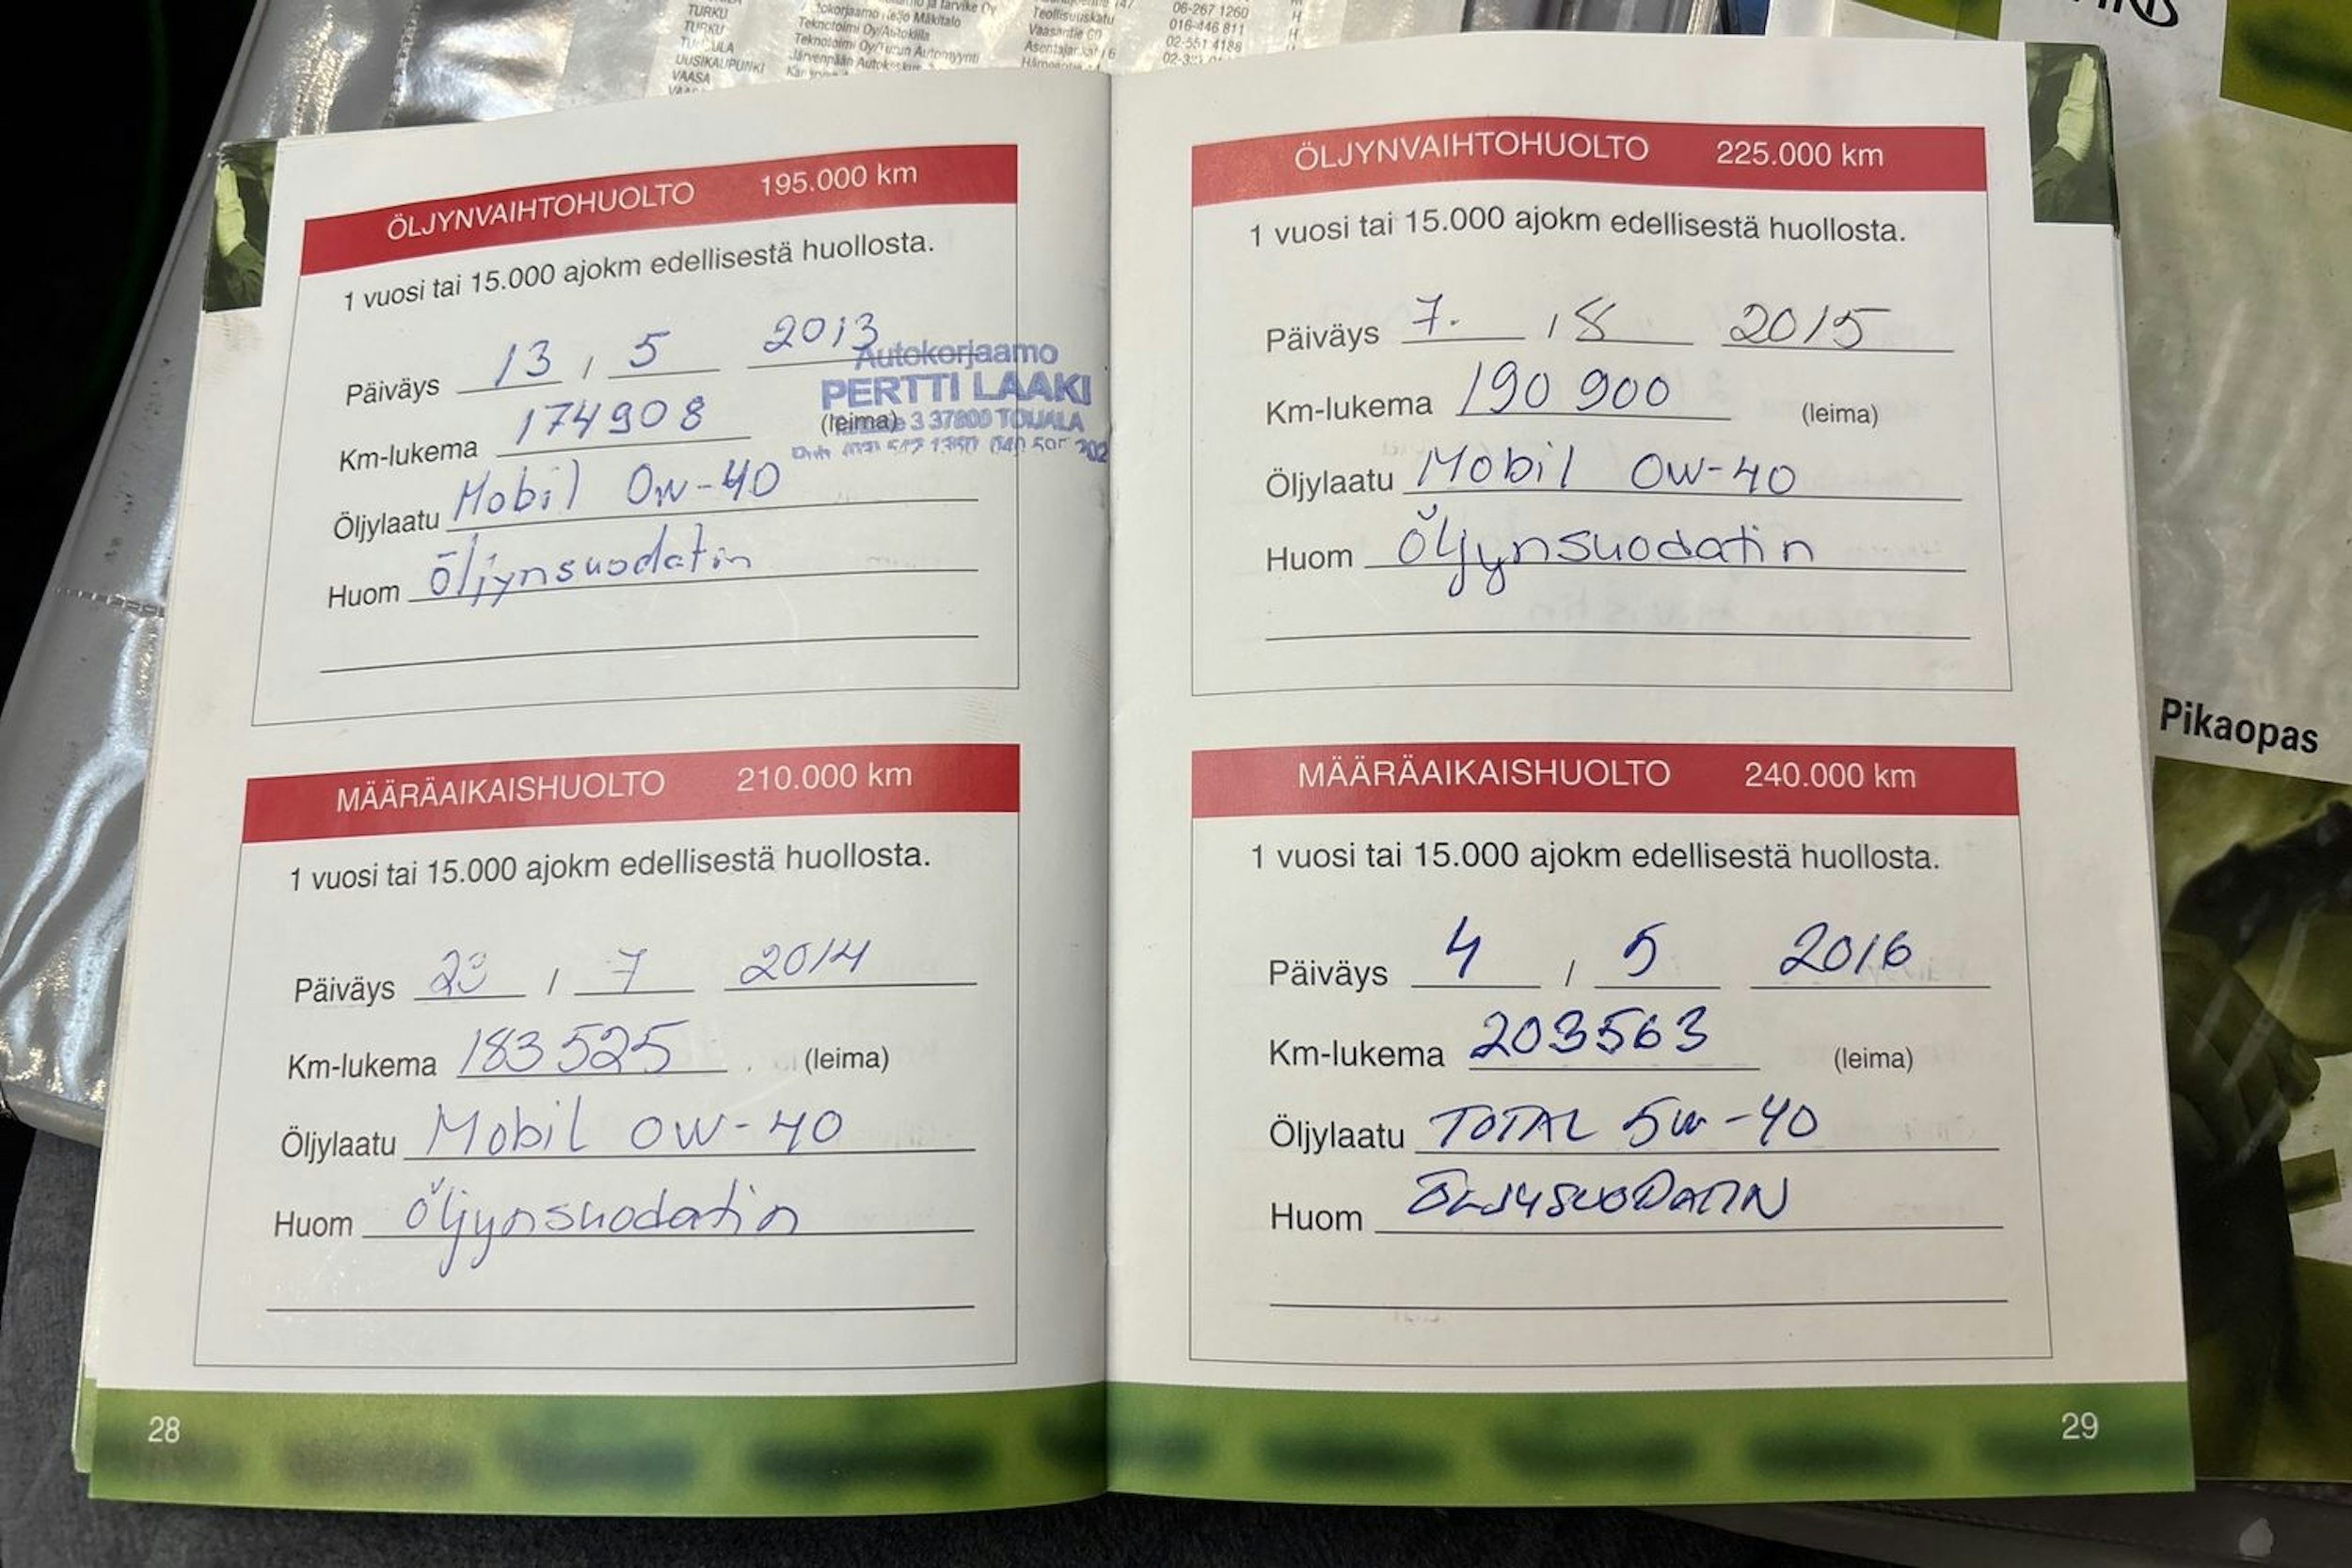 TURKU
TURKU
UUSIKAUPUNKI
VAASA
Teknotoimi Oy/Autokilla
Teknotoimi Oy/Turun Automyynti
Teollisuuskatu
Vaasantie
06-267 1260
016-446 811
02-551 4186
H
H
ÖLJYNVAIHTOHUOLTO 195.000 km
1 vuosi tai 15.000 ajokm edellisestä huollosta.
Päiväys 13 / 5 2013
Autokorjaamo
PERTTI LAAKI
Km-lukema 174908 (leima)
3 37800 TOIJALA
Öljylaatu Mobil 0w-40
Huom öljynsuodatin
MÄÄRÄAIKAISHUOLTO 210.000 km
1 vuosi tai 15.000 ajokm edellisestä huollosta.
Päiväys 23 / 7 2014
Km-lukema 183525 (leima)
Öljylaatu Mobil 0W-40
Huom öljynsuodatin
28
ÖLJYNVAIHTOHUOLTO 225.000 km
1 vuosi tai 15.000 ajokm edellisestä huollosta.
Päiväys 7. / 8 2015
Km-lukema 190 900 (leima)
Öljylaatu Mobil 0W-40
Huom öljynsuodatin
MÄÄRÄAIKAISHUOLTO 240.000 km
1 vuosi tai 15.000 ajokm edellisestä huollosta.
Päiväys 4 / 5 2016
Km-lukema 203563 (leima)
Öljylaatu TOTAL 5W-40
Huom ÖLJYSUODATIN
29
Pikaopas